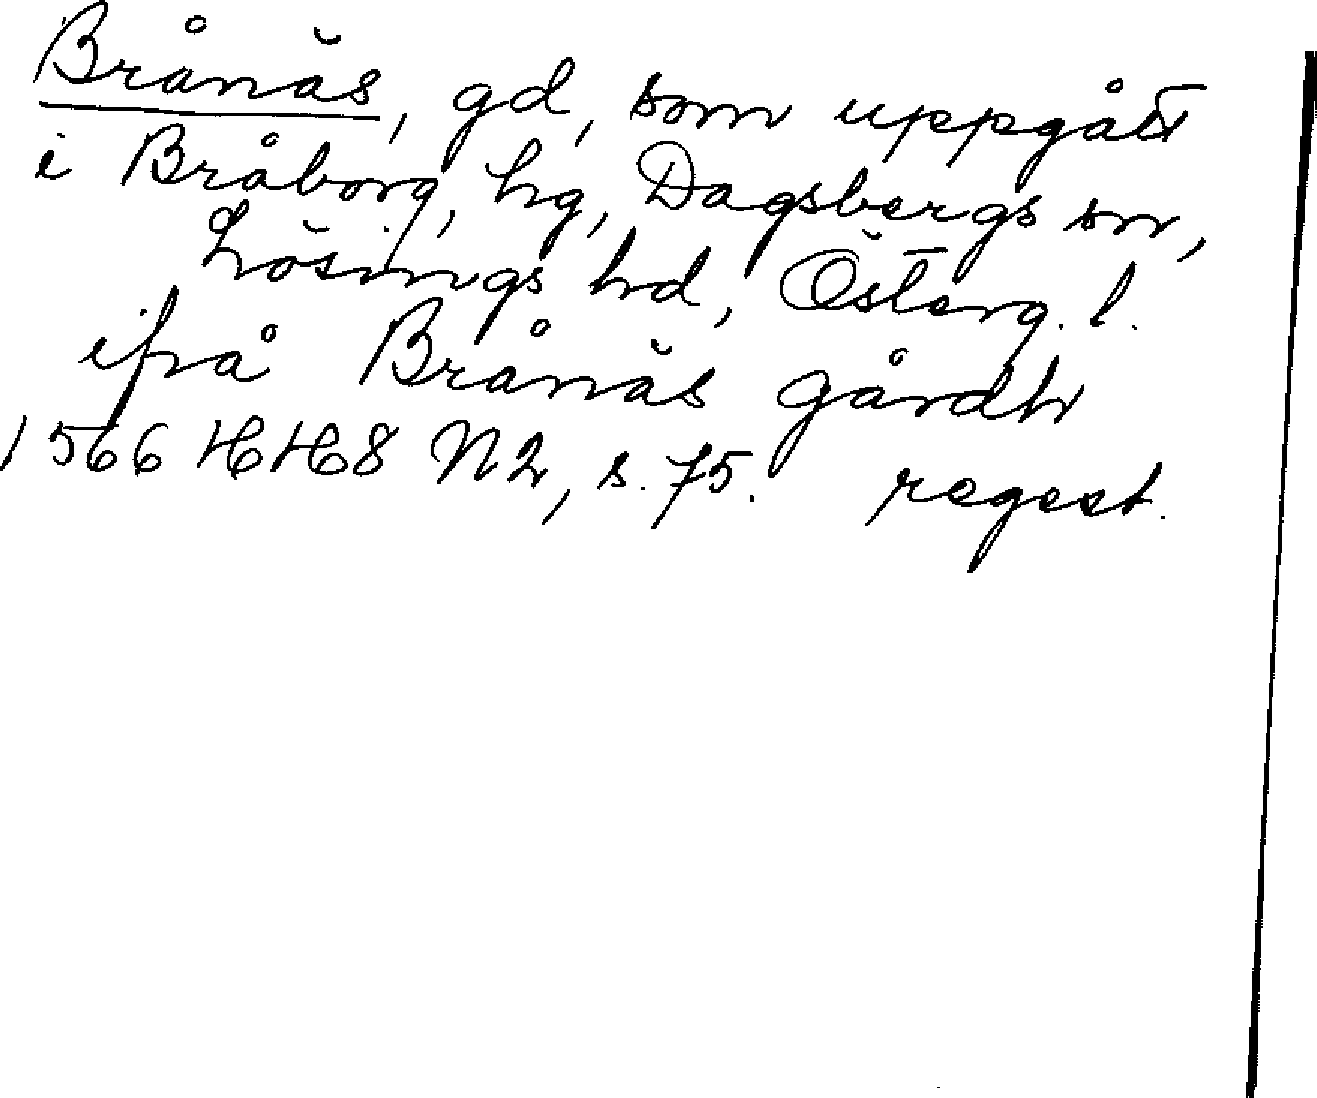 Brånäs, gd, som uppgått
i Bråborg, hg, Dagsbergs sn,
Lösings hd, Österg. l.
ifrå Brånäs gårdh
1566 HH8 N2, s. 75. regest.